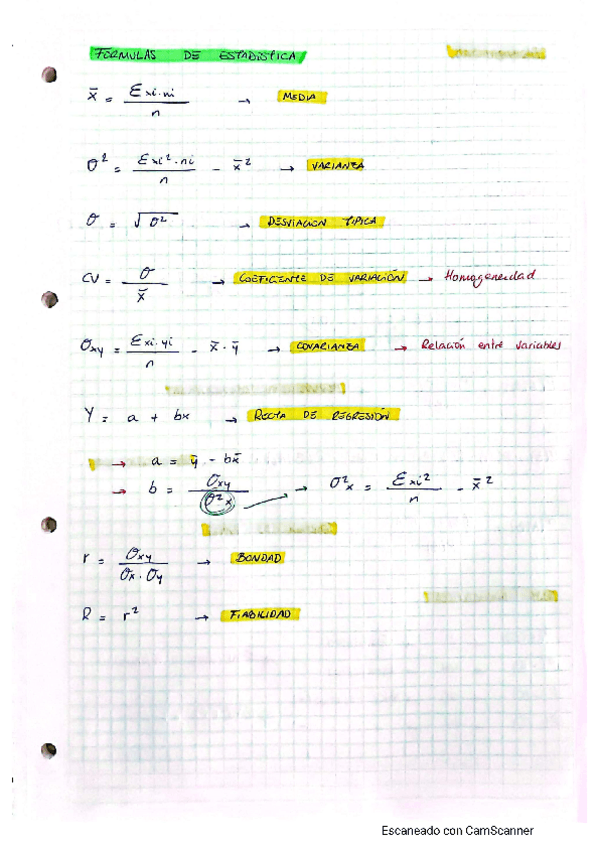 FORMULAS DE ESTADISTICA
x̄ = Σxi·ni / n → MEDIA
σ² = Σxi²·ni / n - x̄² → VARIANZA
σ = √σ² → DESVIACION TIPICA
CV = σ / x̄ → COEFICIENTE DE VARIACIÓN → Homogeneidad
σxy = Σxi·yi / n - x̄·ȳ → COVARIANZA → Relación entre variables
Y = a + bx → RECTA DE REGRESIÓN
→ a = ȳ - bx̄
→ b = σxy / σ²x → σ²x = Σxi² / n - x̄²
r = σxy / σx·σy → BONDAD
R = r² → FIABILIDAD
Escaneado con CamScanner